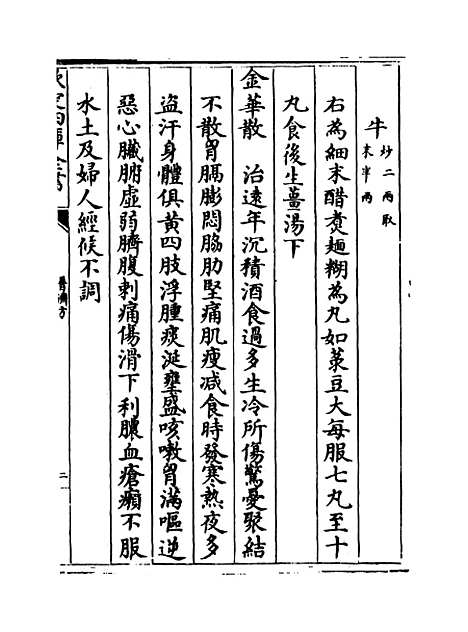 牛炒二兩取末半兩
右為細末醋煑麺糊為丸如菉豆大每服七丸至十
丸食後生薑湯下
金華散　治遠年沉積酒食過多生冷所傷驚憂聚結
不散胷膈膨悶脇肋堅痛肌瘦減食時發寒熱夜多
盗汗身體俱黄四肢浮腫痰涎壅盛咳嗽胷滿嘔逆
惡心臟腑虛弱臍腹刺痛傷滑下利膿血瘡癪不服
水土及婦人經候不調
普濟方
二